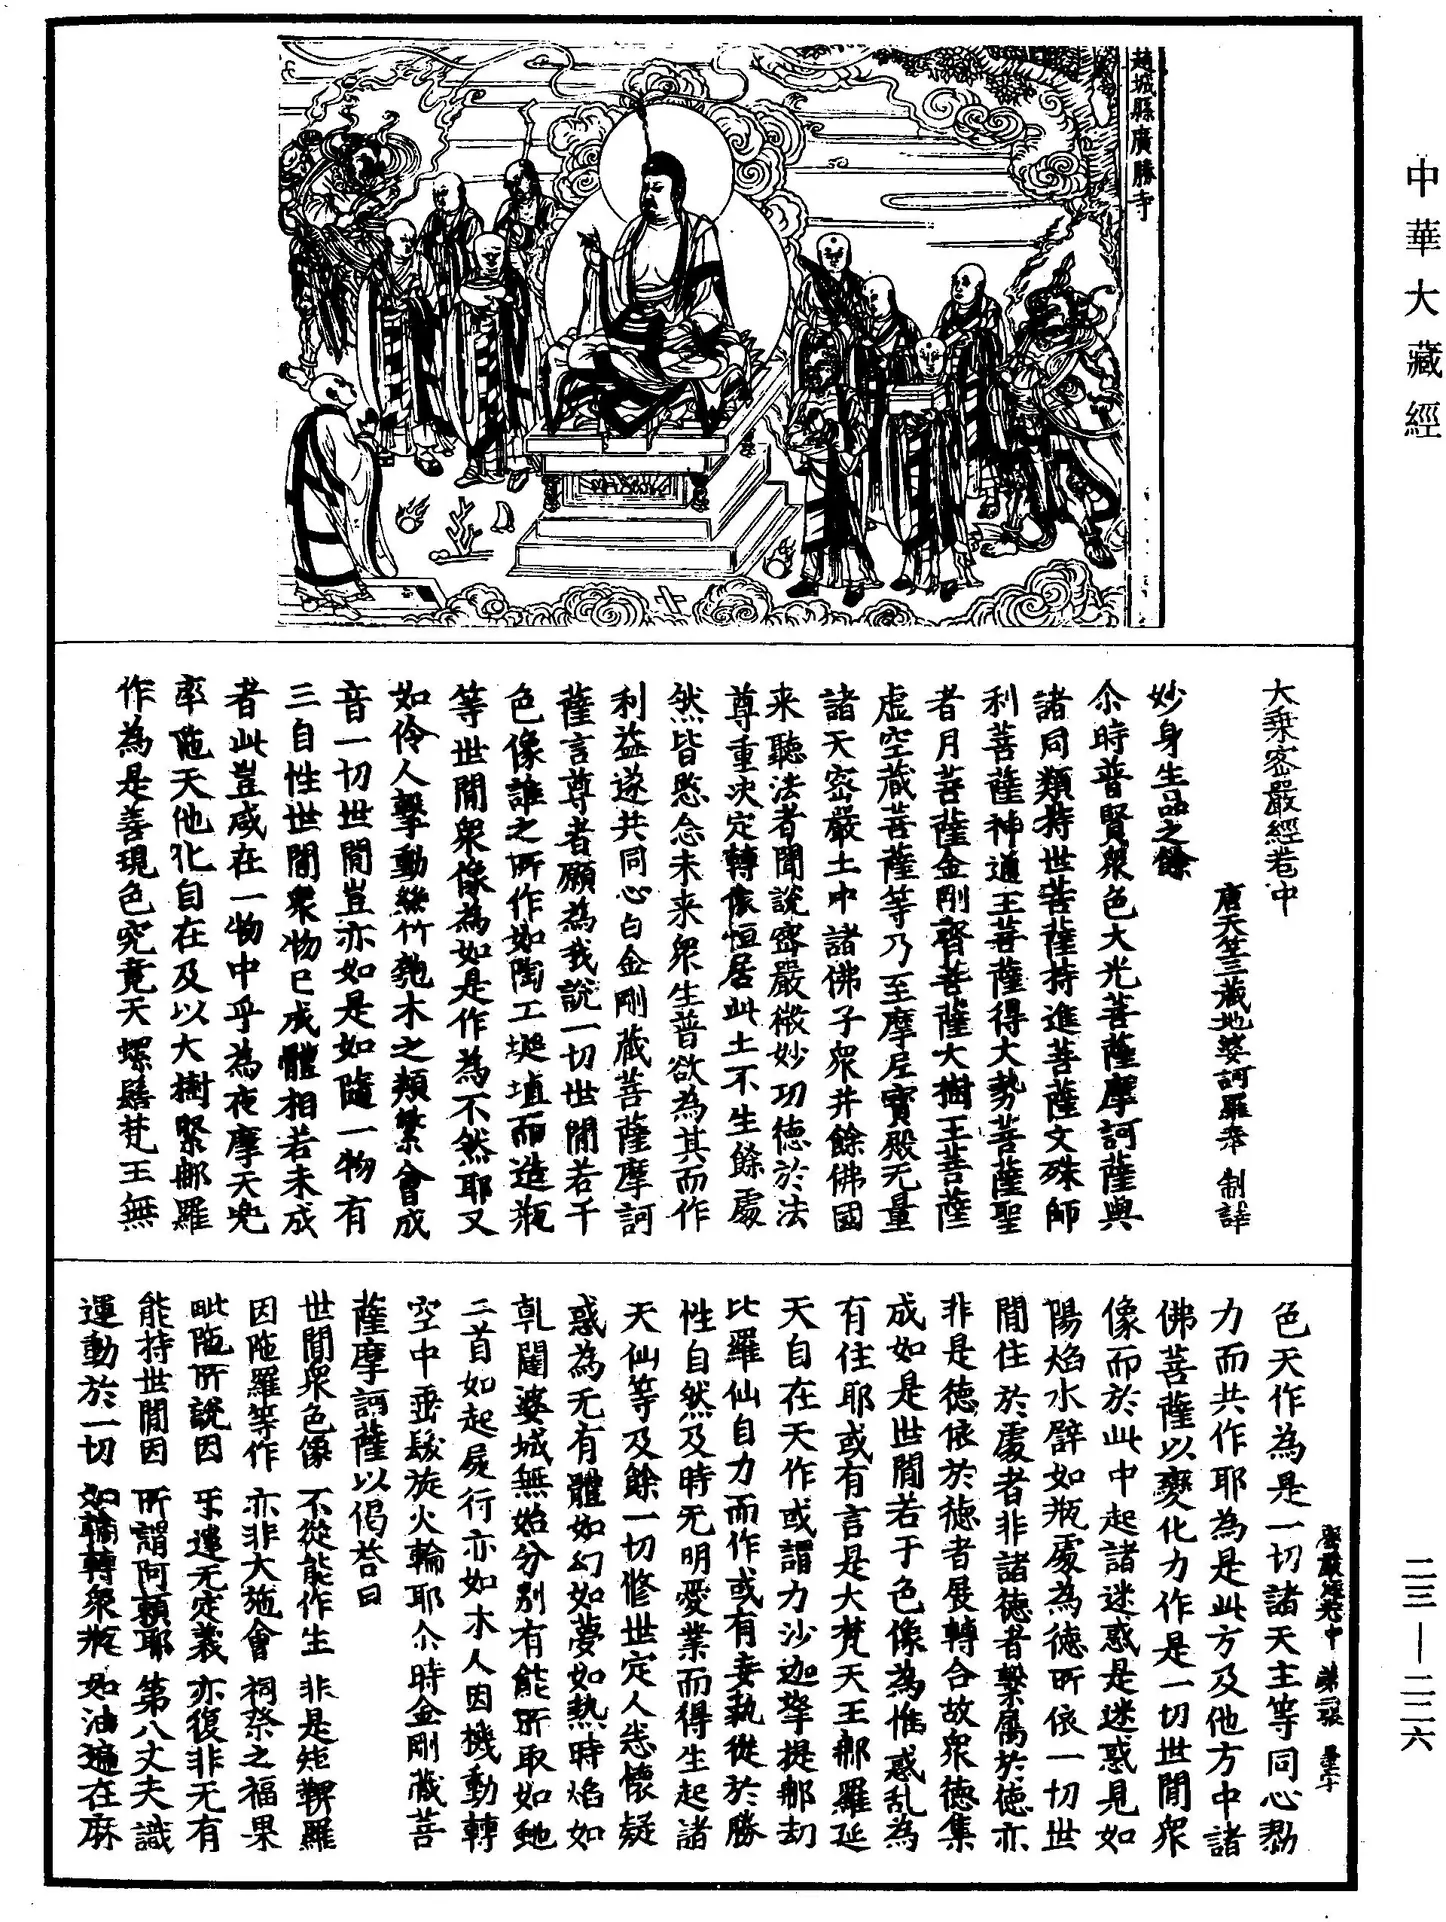 中華大藏經
趙城縣廣勝寺
大乘密嚴經卷中
唐天竺三藏地婆訶羅奉 制譯
妙身生品之餘
尒時普賢衆色大光菩薩摩訶薩與
諸同類持世菩薩持進菩薩文殊師
利菩薩神通王菩薩得大勢菩薩聖
者月菩薩金剛齊菩薩大樹王菩薩
虛空藏菩薩等乃至摩尼寶殿无量
諸天密嚴土中諸佛子衆并餘佛國
来聽法者聞說密嚴微妙功德於法
尊重決定轉依恒居此土不生餘處
然皆愍念未来衆生普欲為其而作
利益遂共同心白金剛藏菩薩摩訶
薩言尊者願為我說一切世間若干
色像誰之所作如陶工埏埴而造瓶
等世間衆像為如是作為不然耶又
如伶人擊動絲竹匏木之類繁會成
音一切世間豈亦如是如隨一物有
三自性世間衆物已成體相若未成
者此豈咸在一物中乎為夜摩天兠
率陁天他化自在及以大樹緊那羅
作為是善現色究竟天螺髻梵王無
色天作為是一切諸天主等同心勠
力而共作耶為是此方及他方中諸
佛菩薩以變化力作是一切世間衆
像而於此中起諸迷惑是迷惑見如
陽焰水譬如瓶處為德所依一切世
間住於處者非諸德者繫屬於德亦
非是德依於德者展轉合故衆德集
成如是世間若干色像為惟惑乱為
有住耶或有言是大梵天王那羅延
天自在天作或謂力沙迦拏提那劫
比羅仙自力而作或有妄執從於勝
性自然及時无明愛業而得生起諸
天仙等及餘一切修世定人悉懷疑
惑為无有體如幻如夢如熱時焰如
乹闥婆城無始分別有能所取如虵
二首如起屍行亦如木人因機動轉
空中垂髮旋火輪耶尒時金剛藏菩
薩摩訶薩以偈荅曰
世間衆色像 不從能作生 非是矩鞞羅
因陁羅等作 亦非大施會 祠祭之福果
毗陁所說因 乐違无定義 亦復非无有
能持世間因 所謂阿頼耶 第八丈夫識
運動於一切 如輪轉衆瓶 如油遍在麻
密嚴經卷中 第二張
二三—二二六